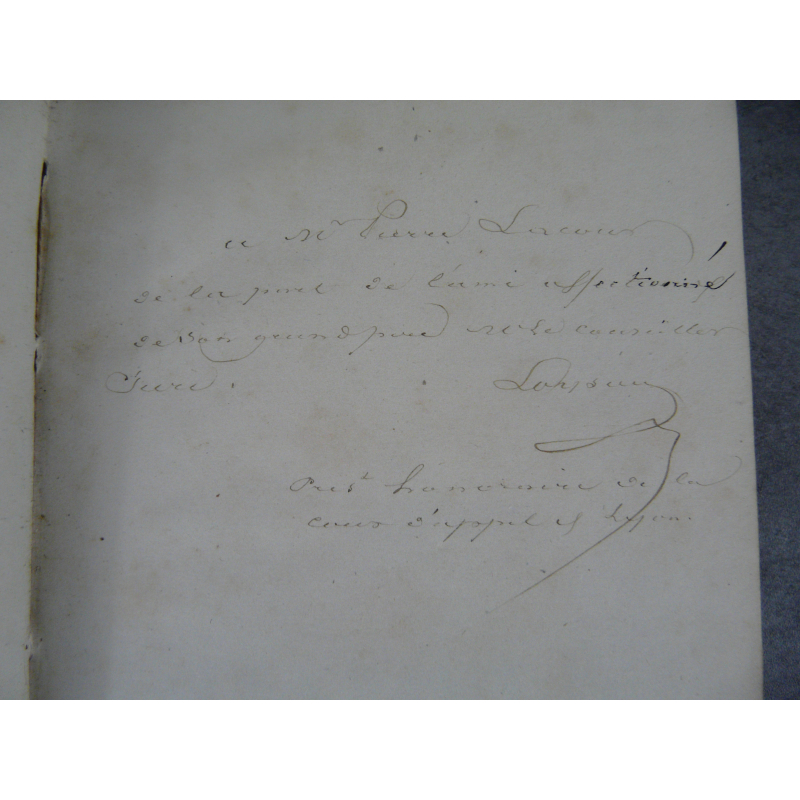 a Mr Pierre Lacour
de la part de l'ami affectionné
de son grand père Mr Le conseiller
Pres.t honoraire de la
cour d'appel de Lyon.